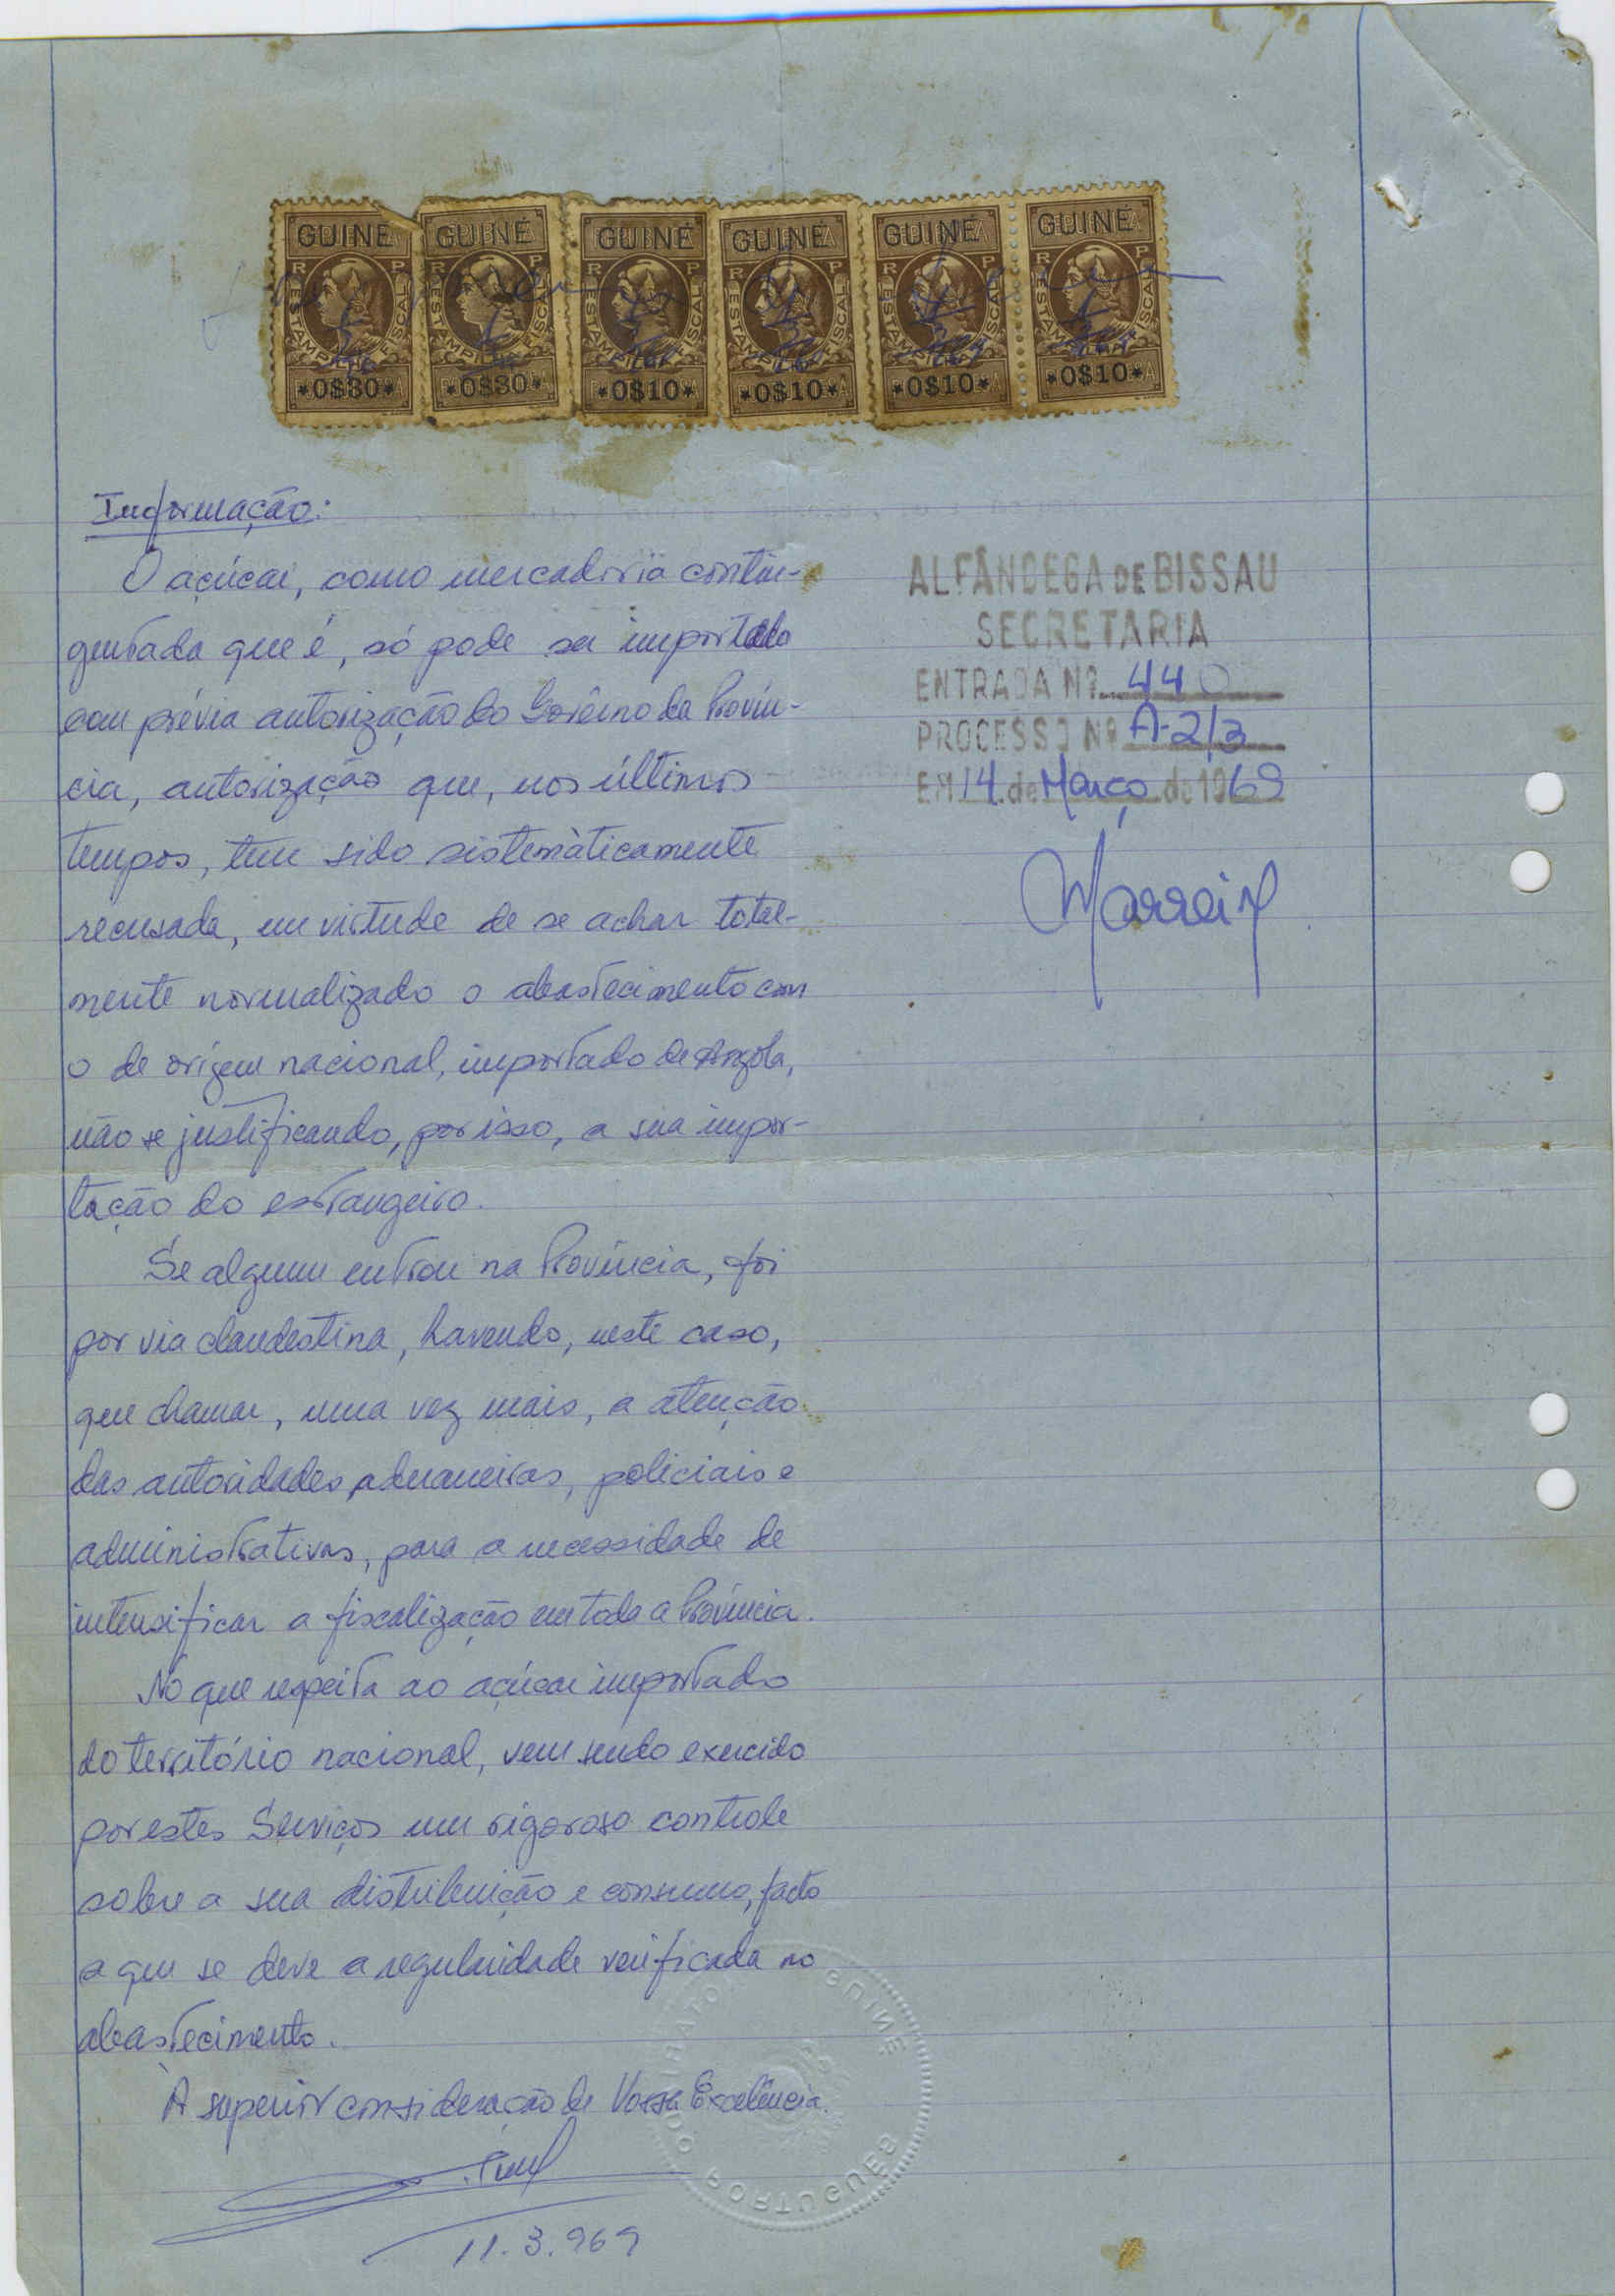 GUINÉ GUINÉ GUINÉ GUINÉ GUINÉ GUINÉ
R P R P R P R P R P R P
ESTAMPILHA FISCAL ESTAMPILHA FISCAL ESTAMPILHA FISCAL ESTAMPILHA FISCAL ESTAMPILHA FISCAL ESTAMPILHA FISCAL
*0$30* *0$30* *0$10* *0$10* *0$10* *0$10*
Informação:
O açúcar, como mercadoria contin-
gentada que é, só pode ser importado
com prévia autorização do Govêrno da Provín-
cia, autorização que, nos últimos
tempos, tem sido sistemàticamente
recusada, em virtude de se achar total-
mente normalizado o abastecimento com
o de origem nacional, importado de Angola,
não se justificando, por isso, a sua impor-
tação do estrangeiro.
Se algum entrou na Província, foi
por via clandestina, havendo, neste caso,
que chamar, uma vez mais, a atenção
das autoridades aduaneiras, policiais e
administrativas, para a necessidade de
intensificar a fiscalização em toda a Província.
No que respeita ao açúcar importado
do território nacional, vem sendo exercido
por estes Serviços um rigoroso controle
sobre a sua distribuição e consumo, facto
a que se deve a regularidade verificada no
abastecimento.
À superior consideração de Vossa Excelência.
11.3.969
ALFÂNDEGA DE BISSAU
SECRETARIA
ENTRADA Nº 440
PROCESSO Nº A-2/3
EM 14 de Março de 1969
GUINÉ
PORTUGUESA